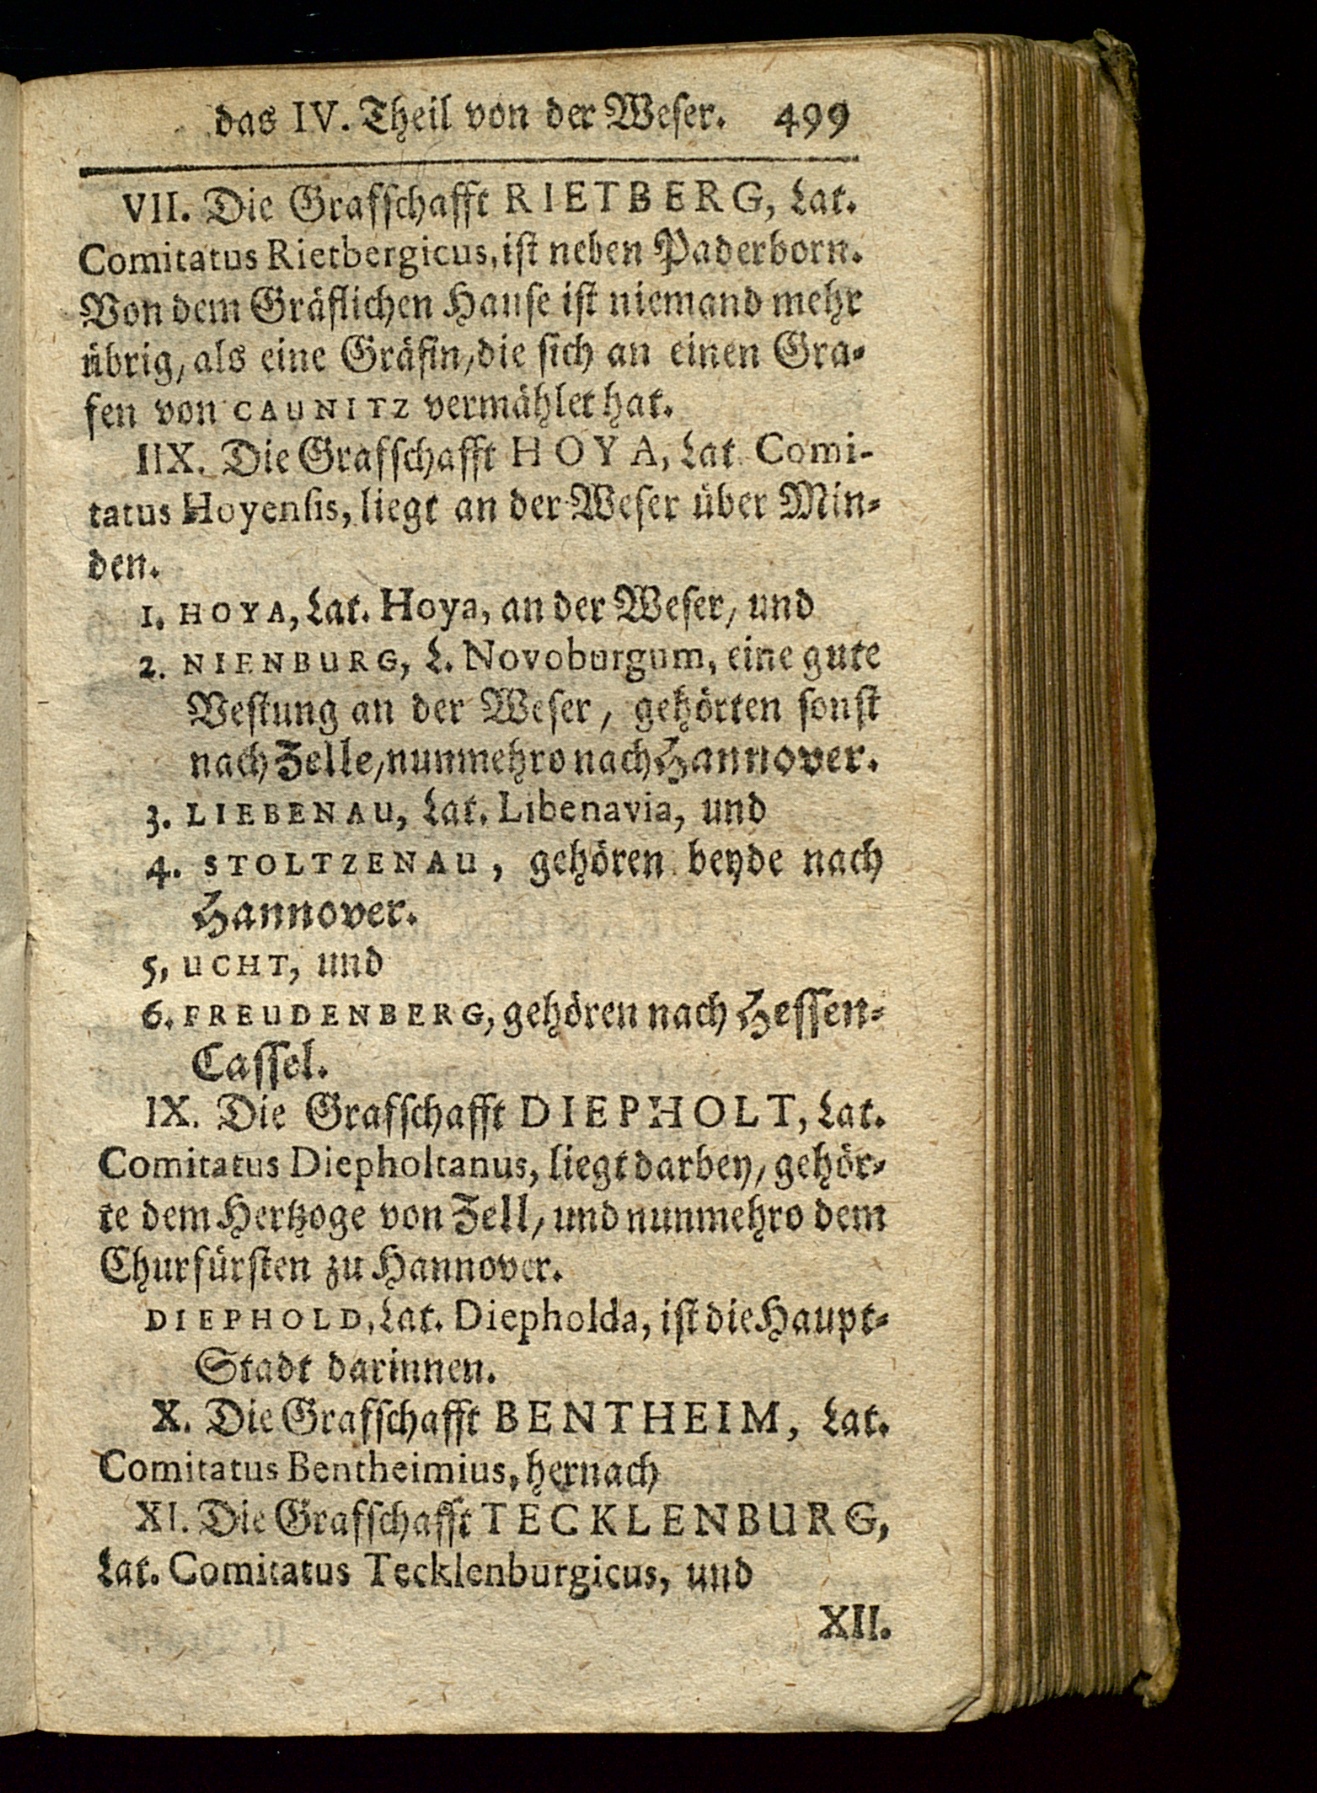 das IV. Theil von der Weser. 499
VII. Die Grafschafft RIETBERG, Lat.
Comitatus Rietbergicus, ist neben Paderborn.
Von dem Gräflichen Hause ist niemand mehr
übrig, als eine Gräfin, die sich an einen Gra-
fen von CAUNITZ vermählet hat.
IIX. Die Grafschafft HOYA, Lat Comi-
tatus Hoyensis, liegt an der Weser über Min-
den.
1. HOYA, Lat. Hoya, an der Weser, und
2. NIENBURG, L. Novoburgum, eine gute
Vestung an der Weser, gehörten sonst
nach Zelle, nunmehro nach Hannover.
3. LIEBENAU, Lat. Libenavia, und
4. STOLTZENAU, gehören beyde nach
Hannover.
5, UCHT, und
6. FREUDENBERG, gehören nach Hessen-
Cassel.
IX. Die Grafschafft DIEPHOLT, Lat.
Comitatus Diepholtanus, liegt darbey, gehör-
te dem Hertzoge von Zell, und nunmehro dem
Churfürsten zu Hannover.
DIEPHOLD, Lat. Diepholda, ist die Haupt-
Stadt darinnen.
X. Die Grafschafft BENTHEIM, Lat.
Comitatus Bentheimius, hernach
XI. Die Grafschafft TECKLENBURG,
Lat. Comitatus Tecklenburgicus, und
XII.